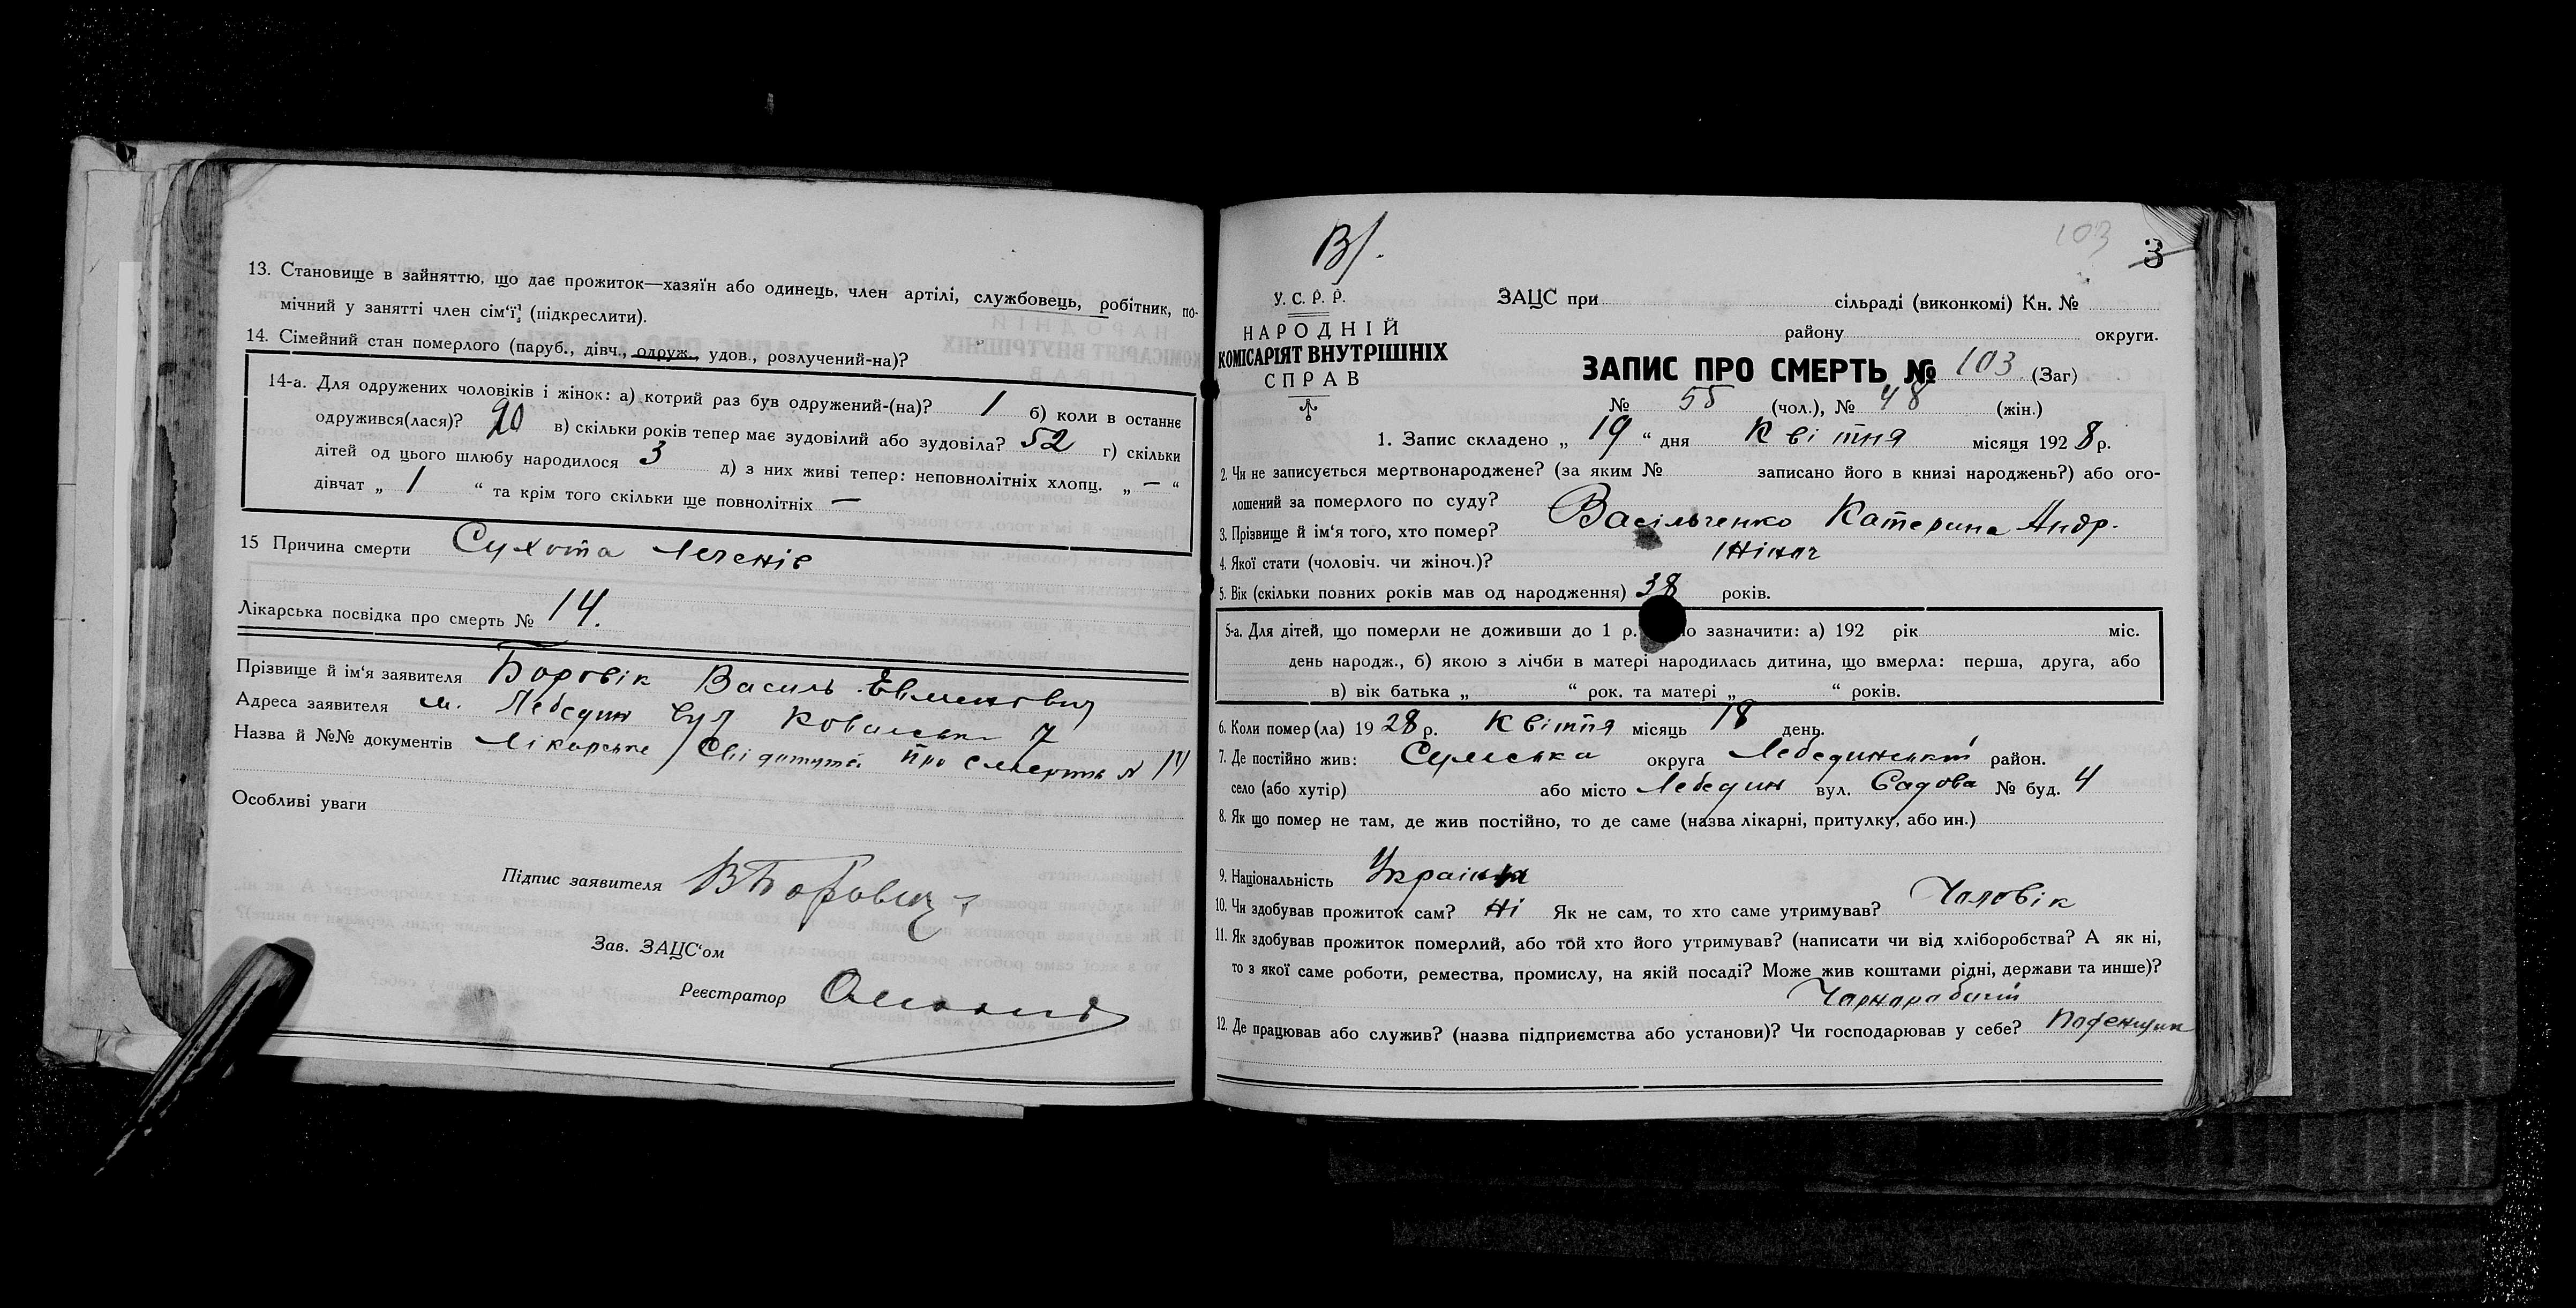 13. Становище в зайняттю, що дає прожиток—хазяїн або одинець, член артілі, службовець, робітник, по-
мічний у занятті член сім'ї (підкреслити).
14. Сімейний стан померлого (паруб., дівч., одруж., удов., розлучений-на)?
14-а. Для одружених чоловіків і жінок: а) котрий раз був одружений-(на)? 1 б) коли в останнє
одружився(лася)? 20 в) скільки років тепер має зудовілий або зудовіла? 52 г) скільки
дітей од цього шлюбу народилося 3 д) з них живі тепер: неповнолітніх хлопц. „ — “
дівчат „ 1 “ та крім того скільки ще повнолітніх —
15 Причина смерти Сухота легенів
Лікарська посвідка про смерть № 14.
Прізвище й ім'я заявителя Боровік Василь Евменович
Адреса заявителя м. Лебедин вул Ковальська 7
Назва й №№ документів Лікарське Свідоцтво про смерть № 14
Особливі уваги
Підпис заявителя В Боровик
Зав. ЗАЦС'ом
Реєстратор
В/.
103
3
У. С. Р. Р.
НАРОДНІЙ
КОМІСАРІЯТ ВНУТРІШНІХ
СПРАВ
ЗАЦС при сільраді (виконкомі) Кн. №
району округи.
ЗАПИС ПРО СМЕРТЬ № 103 (Заг)
№ 55 (чол.), № 48 (жін.)
1. Запис складено „ 19 “ дня Квітня місяця 192 8 р.
2. Чи не записується мертвонароджене? (за яким № записано його в книзі народжень?) або ого-
лошений за померлого по суду?
3. Прізвище й ім'я того, хто помер? Васільченко Катерина Андр.
4. Якої стати (чоловіч. чи жіноч.)? Жіноч
5. Вік (скільки повних років мав од народження) 38 років.
5-а. Для дітей, що померли не доживши до 1 р. зазначити: а) 192 рік міс.
день народж., б) якою з лічби в матері народилась дитина, що вмерла: перша, друга, або
в) вік батька „ “ рок. та матері „ “ років.
6. Коли помер(ла) 19 28 р. Квітня місяць 18 день.
7. Де постійно жив: Сумська округа Лебединський район.
село (або хутір) або місто Лебедин вул. Садова № буд. 4
8. Як що помер не там, де жив постійно, то де саме (назва лікарні, притулку, або ин.)
9. Національність Українка
10. Чи здобував прожиток сам? Ні Як не сам, то хто саме утримував? Чоловік
11. Як здобував прожиток померлий, або той хто його утримував? (написати чи від хліборобства? А як ні,
то з якої саме роботи, ремества, промислу, на якій посаді? Може жив коштами рідні, держави та инше)?
Чорноробочий
12. Де працював або служив? (назва підприємства або установи)? Чи господарював у себе? Поденщик